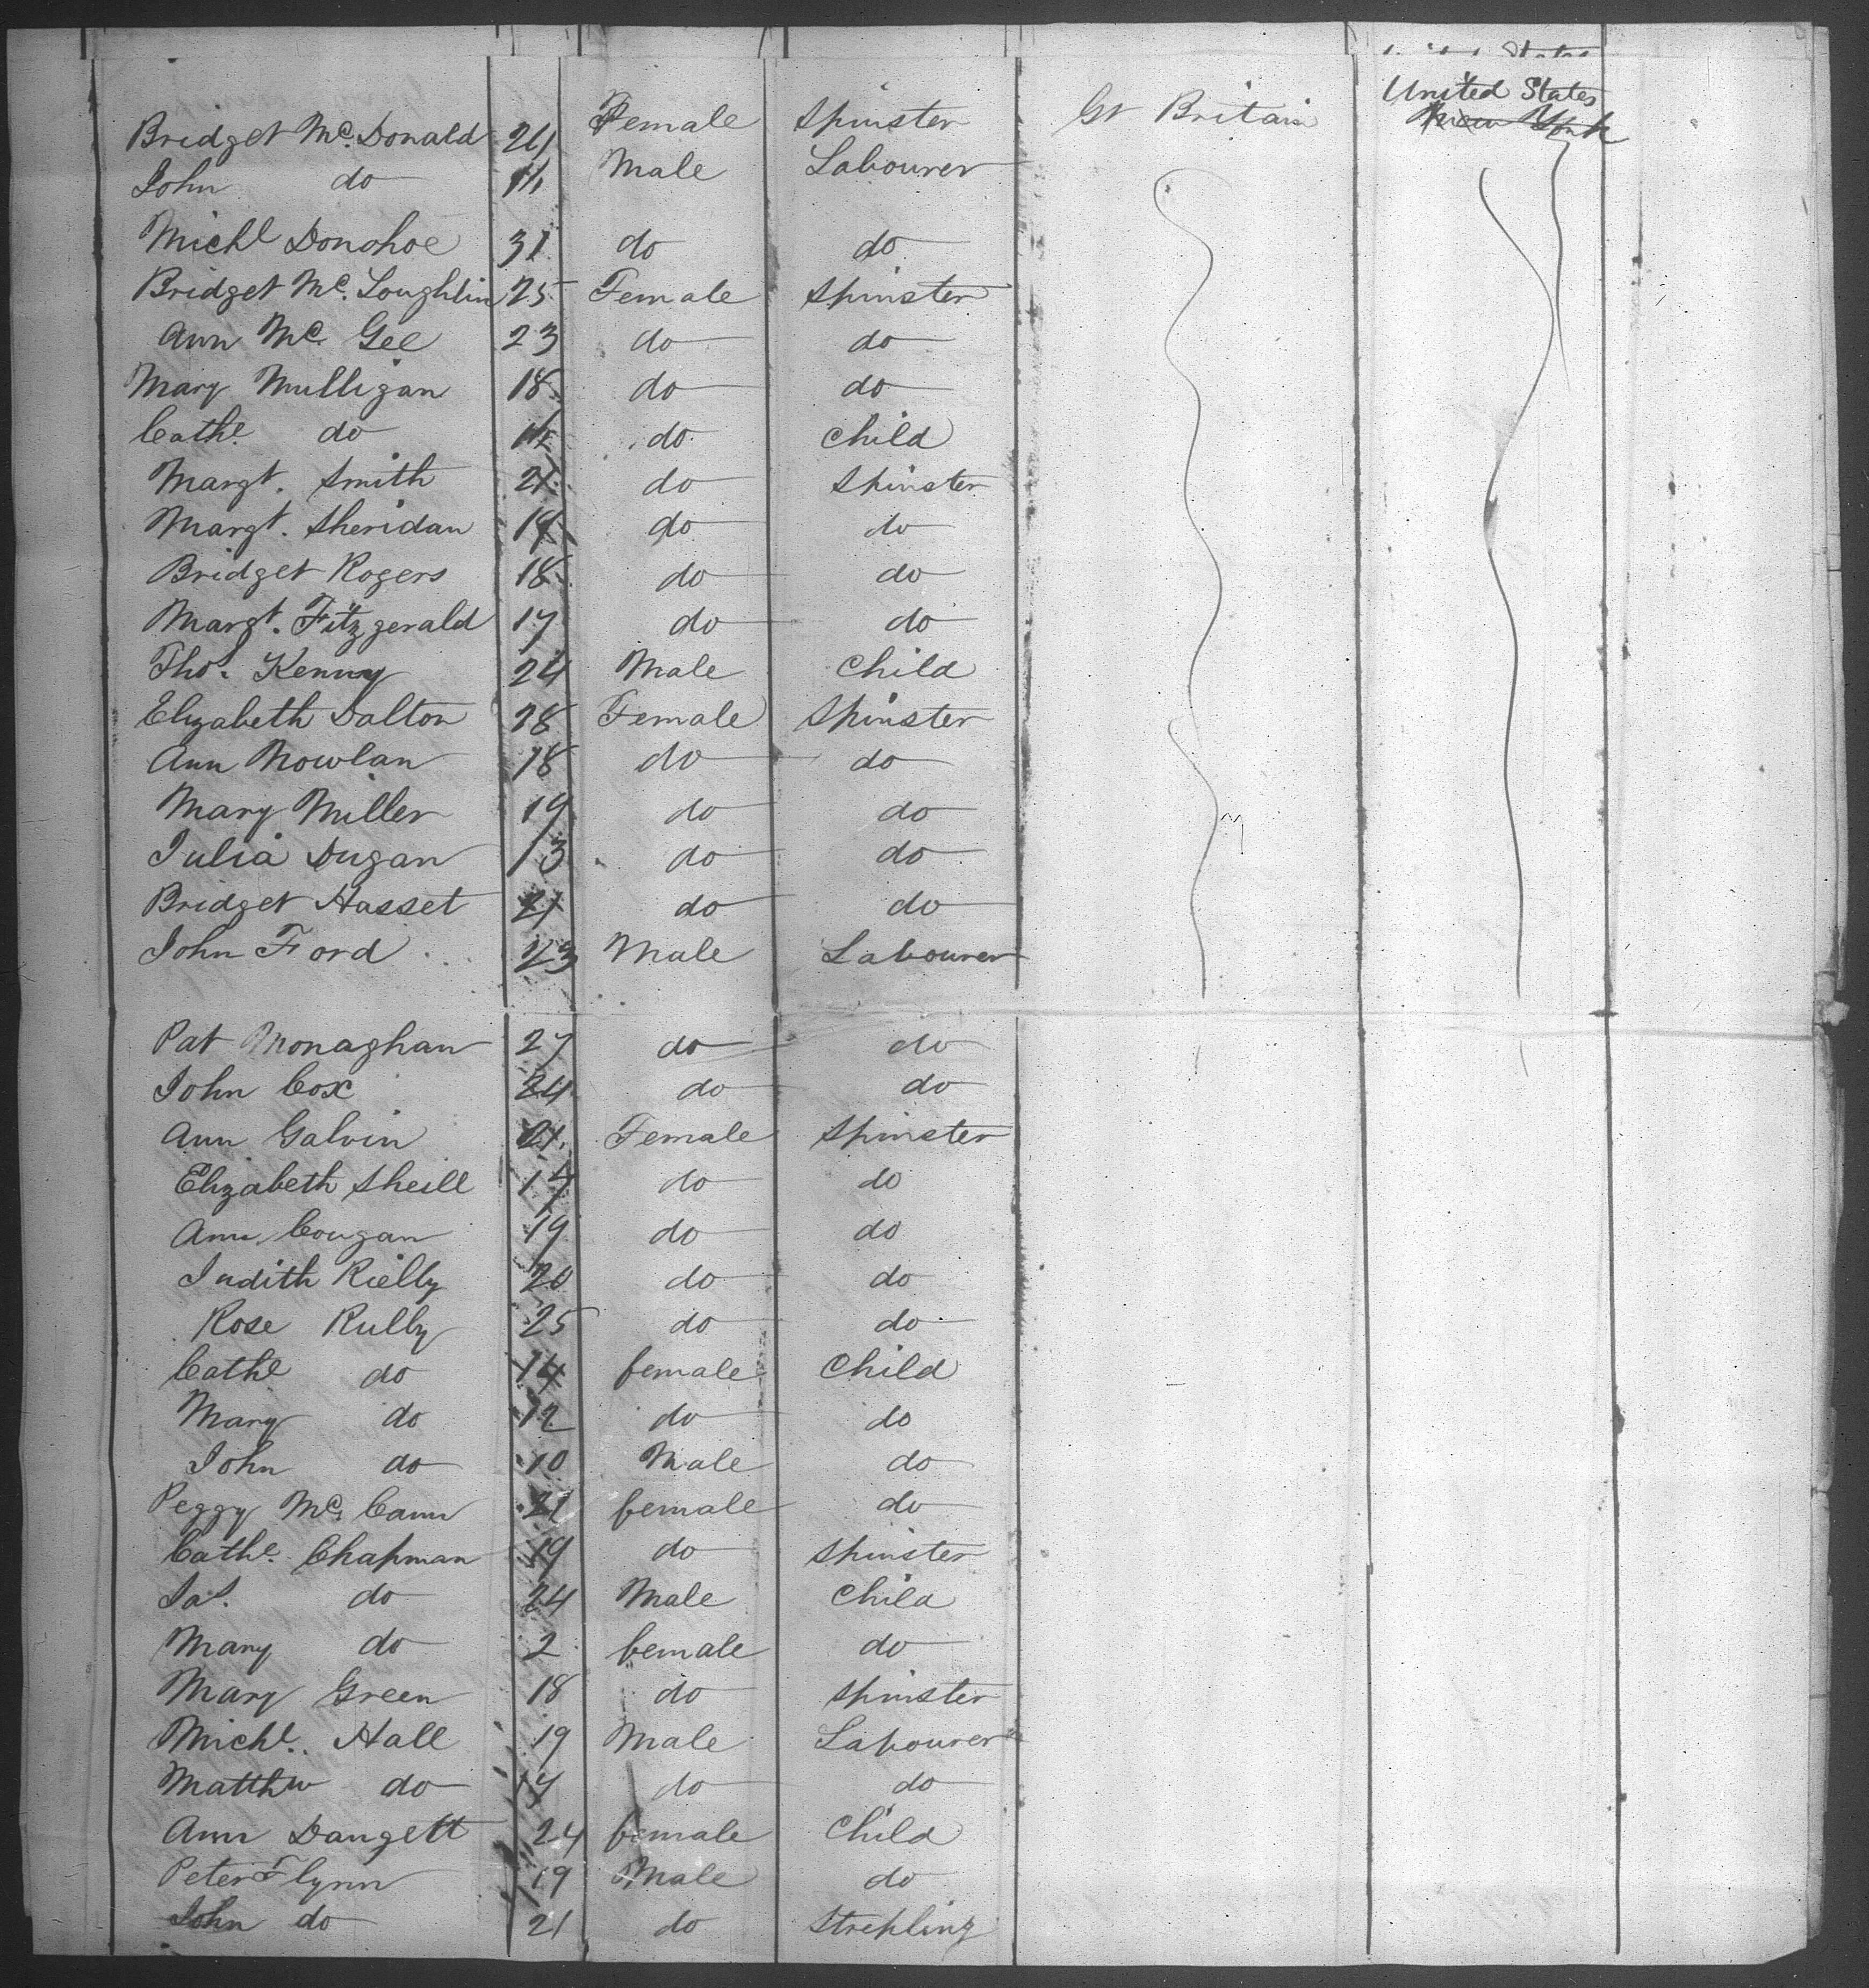 United States
Bridget Mc. Donald 24 Female Spinster Gt Britain New York
John do Male Labourer
Michl Donohoe 31 do do
Bridget Mc. Loughlin 25 Female Spinster
Ann Mc. Gee 23 do do
Mary Mulligan 18 do do
Cathe. do do Child
Margt. Smith 21 do Spinster
Margt. Sheridan do do
Bridget Rogers 18 do do
Margt. Fitzgerald 17 do do
Thos. Kenny 24 Male Child
Elizabeth Dalton 28 Female Spinster
Ann Nowlan 18 do do
Mary Miller 19 do do
Julia Dugan 13 do do
Bridget Hasset 21 do do
John Ford 23 Male Labourer
Pat Monaghan 27 do do
John Cox 24 do do
Ann Galvin 21 Female Spinster
Elizabeth Sheill 17 do do
Ann Cougan 19 do do
Judith Rielly 20 do do
Rose Rielly 25 do do
Cathe do 14 female Child
Mary do 12 do do
John do 10 Male do
Peggy Mc. Cann 21 female do
Cathe. Chapman 19 do Spinster
Jas. do 24 Male Child
Mary do 2 female do
Mary Green 18 do Spinster
Michl. Hall 19 Male Labourer
Matthw do 17 do do
Ann Dangett 24 female Child
Peter Flynn 19 Male do
John do 21 do Strepling